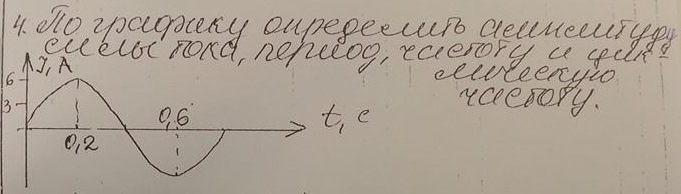 4. По графику определить амплитуду
силы тока, период, частоту и цик-
лическую
частоту.
I, A
6
3
0,6
t, c
0,2